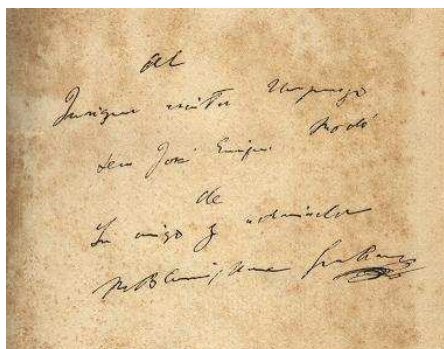 al
Insigne escritor Uruguayo
Don José Enrique Rodó
de
Su amigo y admirador